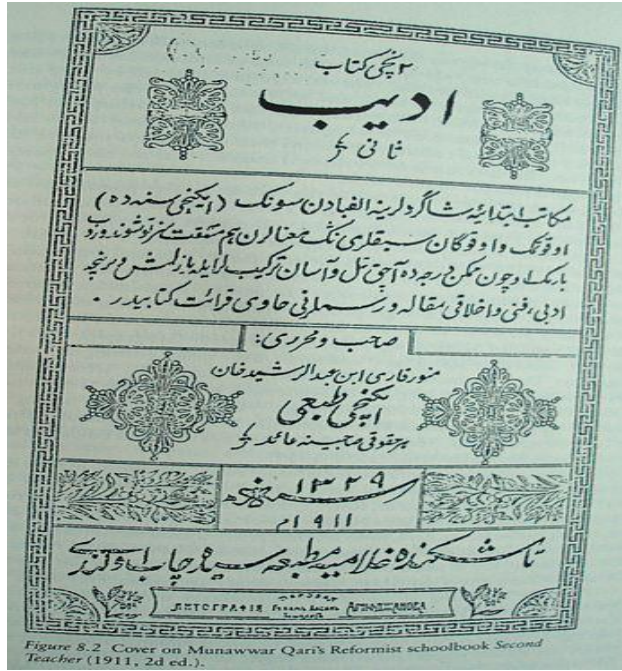 ۲ نچی کتاب
ادیب
ثانی
مکاتب ابتدائیه شاگردلرینه الفبادن سونک (ایکنچی سنه ده)
اوقوتمک و اوقوگان سبقلری نگ معنالرن هم مشقت سز توشوندورب
بارمک اوچون ممکن درجه ده آچق تل و آسان ترکیب لر ایله یازلمش و بر نیچه
ادبی، فنی و اخلاقی مقاله و رسملرنی حاوی قرائت کتابیدر.
صاحب و محرری:
منور قاری ابن عبدالرشید خان
ایکنچی طبعی
هر حقوقی صاحبینه عائد
سنه ۱۳۲۹ هجری
۱۹۱۱م
تاشکندده غلامیه مطبعه سیده چاپ اولندی
ЛИТОГРАФІЯ Гулямъ Хасанъ
Figure 8.2 Cover on Munawwar Qari's Reformist schoolbook Second
Teacher (1911, 2d ed.).